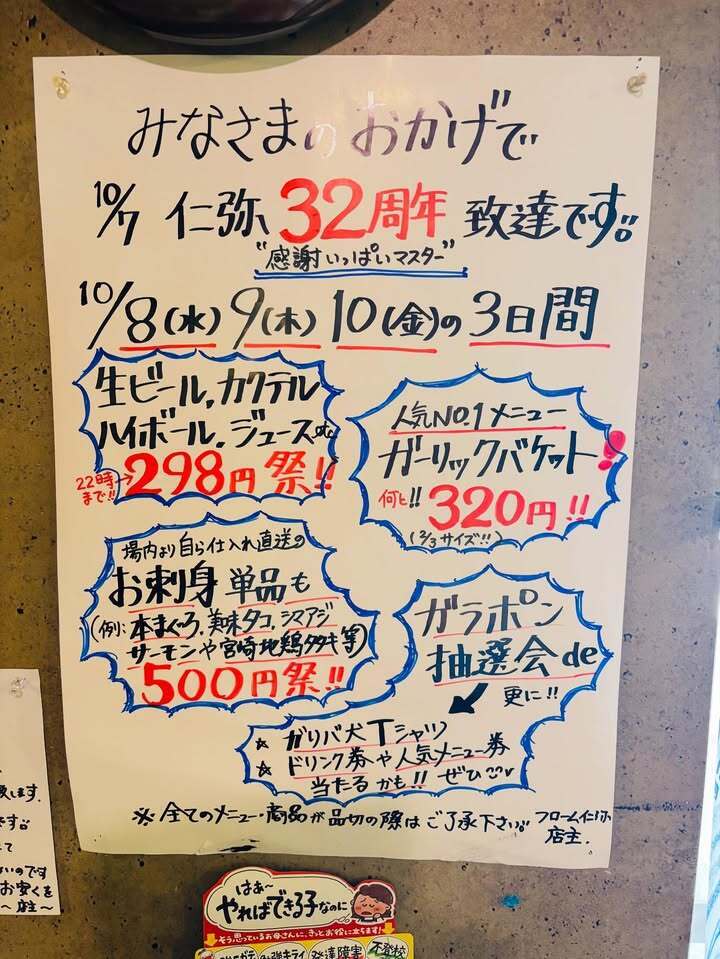 みなさまのおかげで
10/7 仁弥 32周年 致達です!!
"感謝いっぱいマスター"
10/8(水) 9(木) 10(金)の3日間
生ビール、カクテル
ハイボール、ジュースetc
22時まで!!→298円祭!!
人気NO.1メニュー
ガーリックバケット!
何と!! 320円!!
(2/3サイズ!!)
場内より自ら仕入れ直送の
お刺身単品も
(例:本まぐろ、美味タコ、シマアジ
サーモンや宮崎地鶏タタキ等)
500円祭!!
ガラポン
抽選会de
更に!!
☆ ガリバ犬Tシャツ
☆ ドリンク券や人気メニュー券
当たるかも!! ぜひ
※全てのメニュー・商品が品切の際はご了承下さい!! フローム仁弥
店主.
します.
です!!
て
ないのです
お安くを
〜店主〜
はぁ〜
やればできる子なのに
そう思っているお母さんに、きっとお役に立ちます!
発達障害
不登校